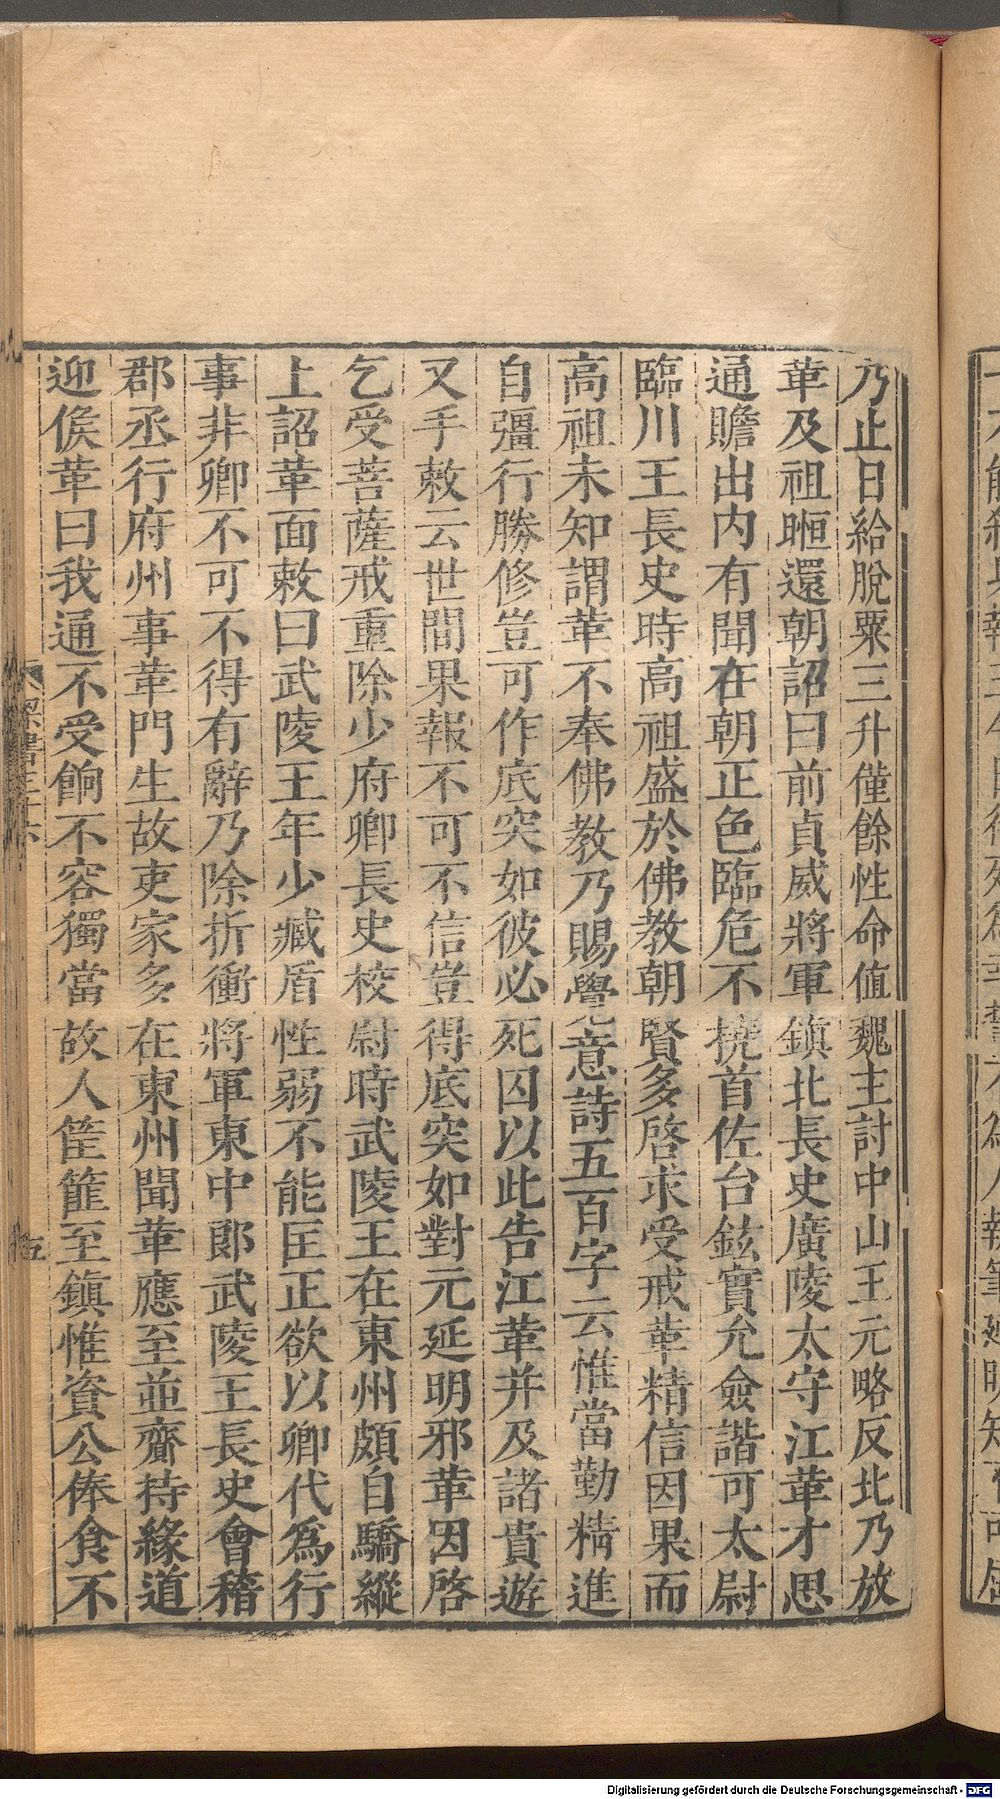 乃止日給脫粟三升僅餘性命值魏主討中山王元略反北乃放
革及祖暅還朝詔曰前貞威將軍鎮北長史廣陵太守江革才思
通贍出內有聞在朝正色臨危不撓首佐台鉉實允僉諧可太尉
臨川王長史時高祖盛於佛教朝賢多啓求受戒革精信因果而
高祖未知謂革不奉佛教乃賜覺意詩五百字云惟當勤精進
自彊行勝修豈可作底突如彼必死囚以此告江革并及諸貴遊
又手敕云世間果報不可不信豈得底突如對元延明邪革因啓
乞受菩薩戒重除少府卿長史校尉時武陵王在東州頗自驕縱
上詔革面敕曰武陵王年少臧盾性弱不能匡正欲以卿代為行
事非卿不可不得有辭乃除折衝將軍東中郎武陵王長史會稽
郡丞行府州事革門生故吏家多在東州聞革應至並齎持緣道
迎候革曰我通不受餉不容獨當故人筐篚至鎮惟資公俸食不
梁書三十六
五
Digitalisierung gefördert durch die Deutsche Forschungsgemeinschaft - DFG